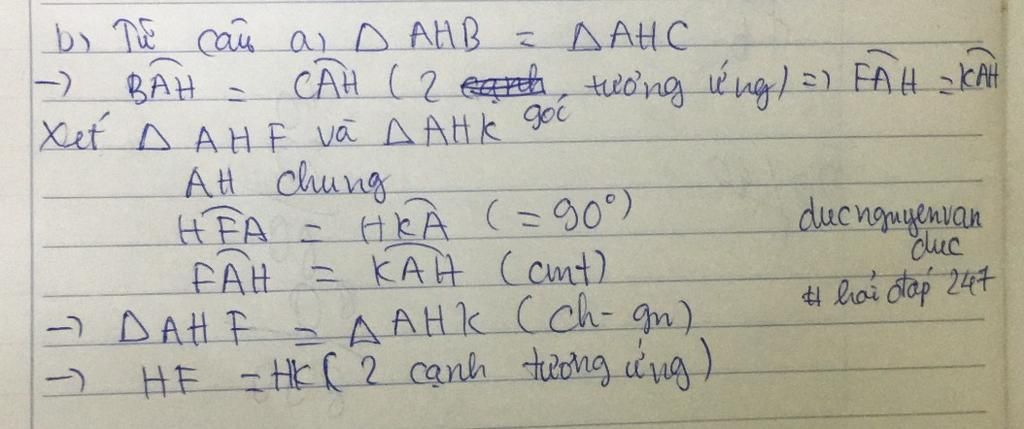 b, Từ câu a) Δ AHB = Δ AHC
→ BAH = CAH (2 góc tương ứng) => FAH = KAH
Xét Δ AHF và Δ AHK
AH chung
HFA = HKA (= 90°)
FAH = KAH (cmt)
→ Δ AHF = Δ AHK (ch - gn)
→ HF = HK (2 cạnh tương ứng)
ducnguyenvan
duc
# hỏi đáp 247